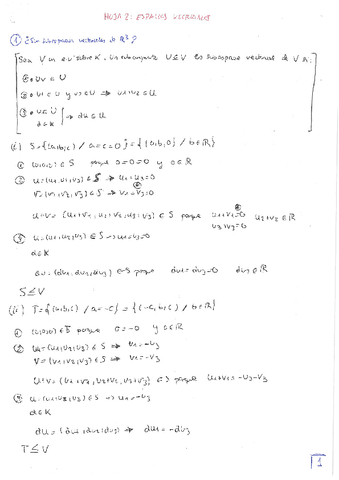 HOJA 2: ESPACIOS VECTORIALES
① ¿Son subespacios vectoriales de ℝ³?
Sea V un e.v. sobre K. Un subconjunto U⊆V es subespacio vectorial de V si:
① 0v ∈ U
② u ∈ U y v ∈ U ⇒ u+v ∈ U
③ u ∈ U
α ∈ K ⇒ αu ∈ U
(i) S = {(a,b,c) / a=c=0} = {(0,b,0) / b∈ℝ}
① (0,0,0) ∈ S porque 0=0=0 y 0∈ℝ
② u=(u1,u2,u3) ∈ S ⇒ u1=u3=0
v=(v1,v2,v3) ∈ S ⇒ v1=v3=0
u+v = (u1+v1, u2+v2, u3+v3) ∈ S porque u1+v1=0 u2+v2 ∈ ℝ
u3+v3=0
③ u=(u1,u2,u3) ∈ S ⇒ u1=u3=0
α∈K
αu = (αu1, αu2, αu3) ∈ S porque αu1=αu3=0 αu2∈ℝ
S≤V
(ii) T = {(a,b,c) / a=-c} = {(-c,b,c) / b∈ℝ}
① (0,0,0) ∈ T porque 0=-0 y 0∈ℝ
② u=(u1,u2,u3) ∈ S ⇒ u1=-u3
v=(v1,v2,v3) ∈ S ⇒ v1=-v3
u+v = (u1+v1, u2+v2, u3+v3) ∈ S porque u1+v1=-u3-v3
③ u=(u1,u2,u3) ∈ S ⇒ u1=-u3
α∈K
αu = (αu1, αu2, αu3) ⇒ αu1=-αu3
T≤V
1